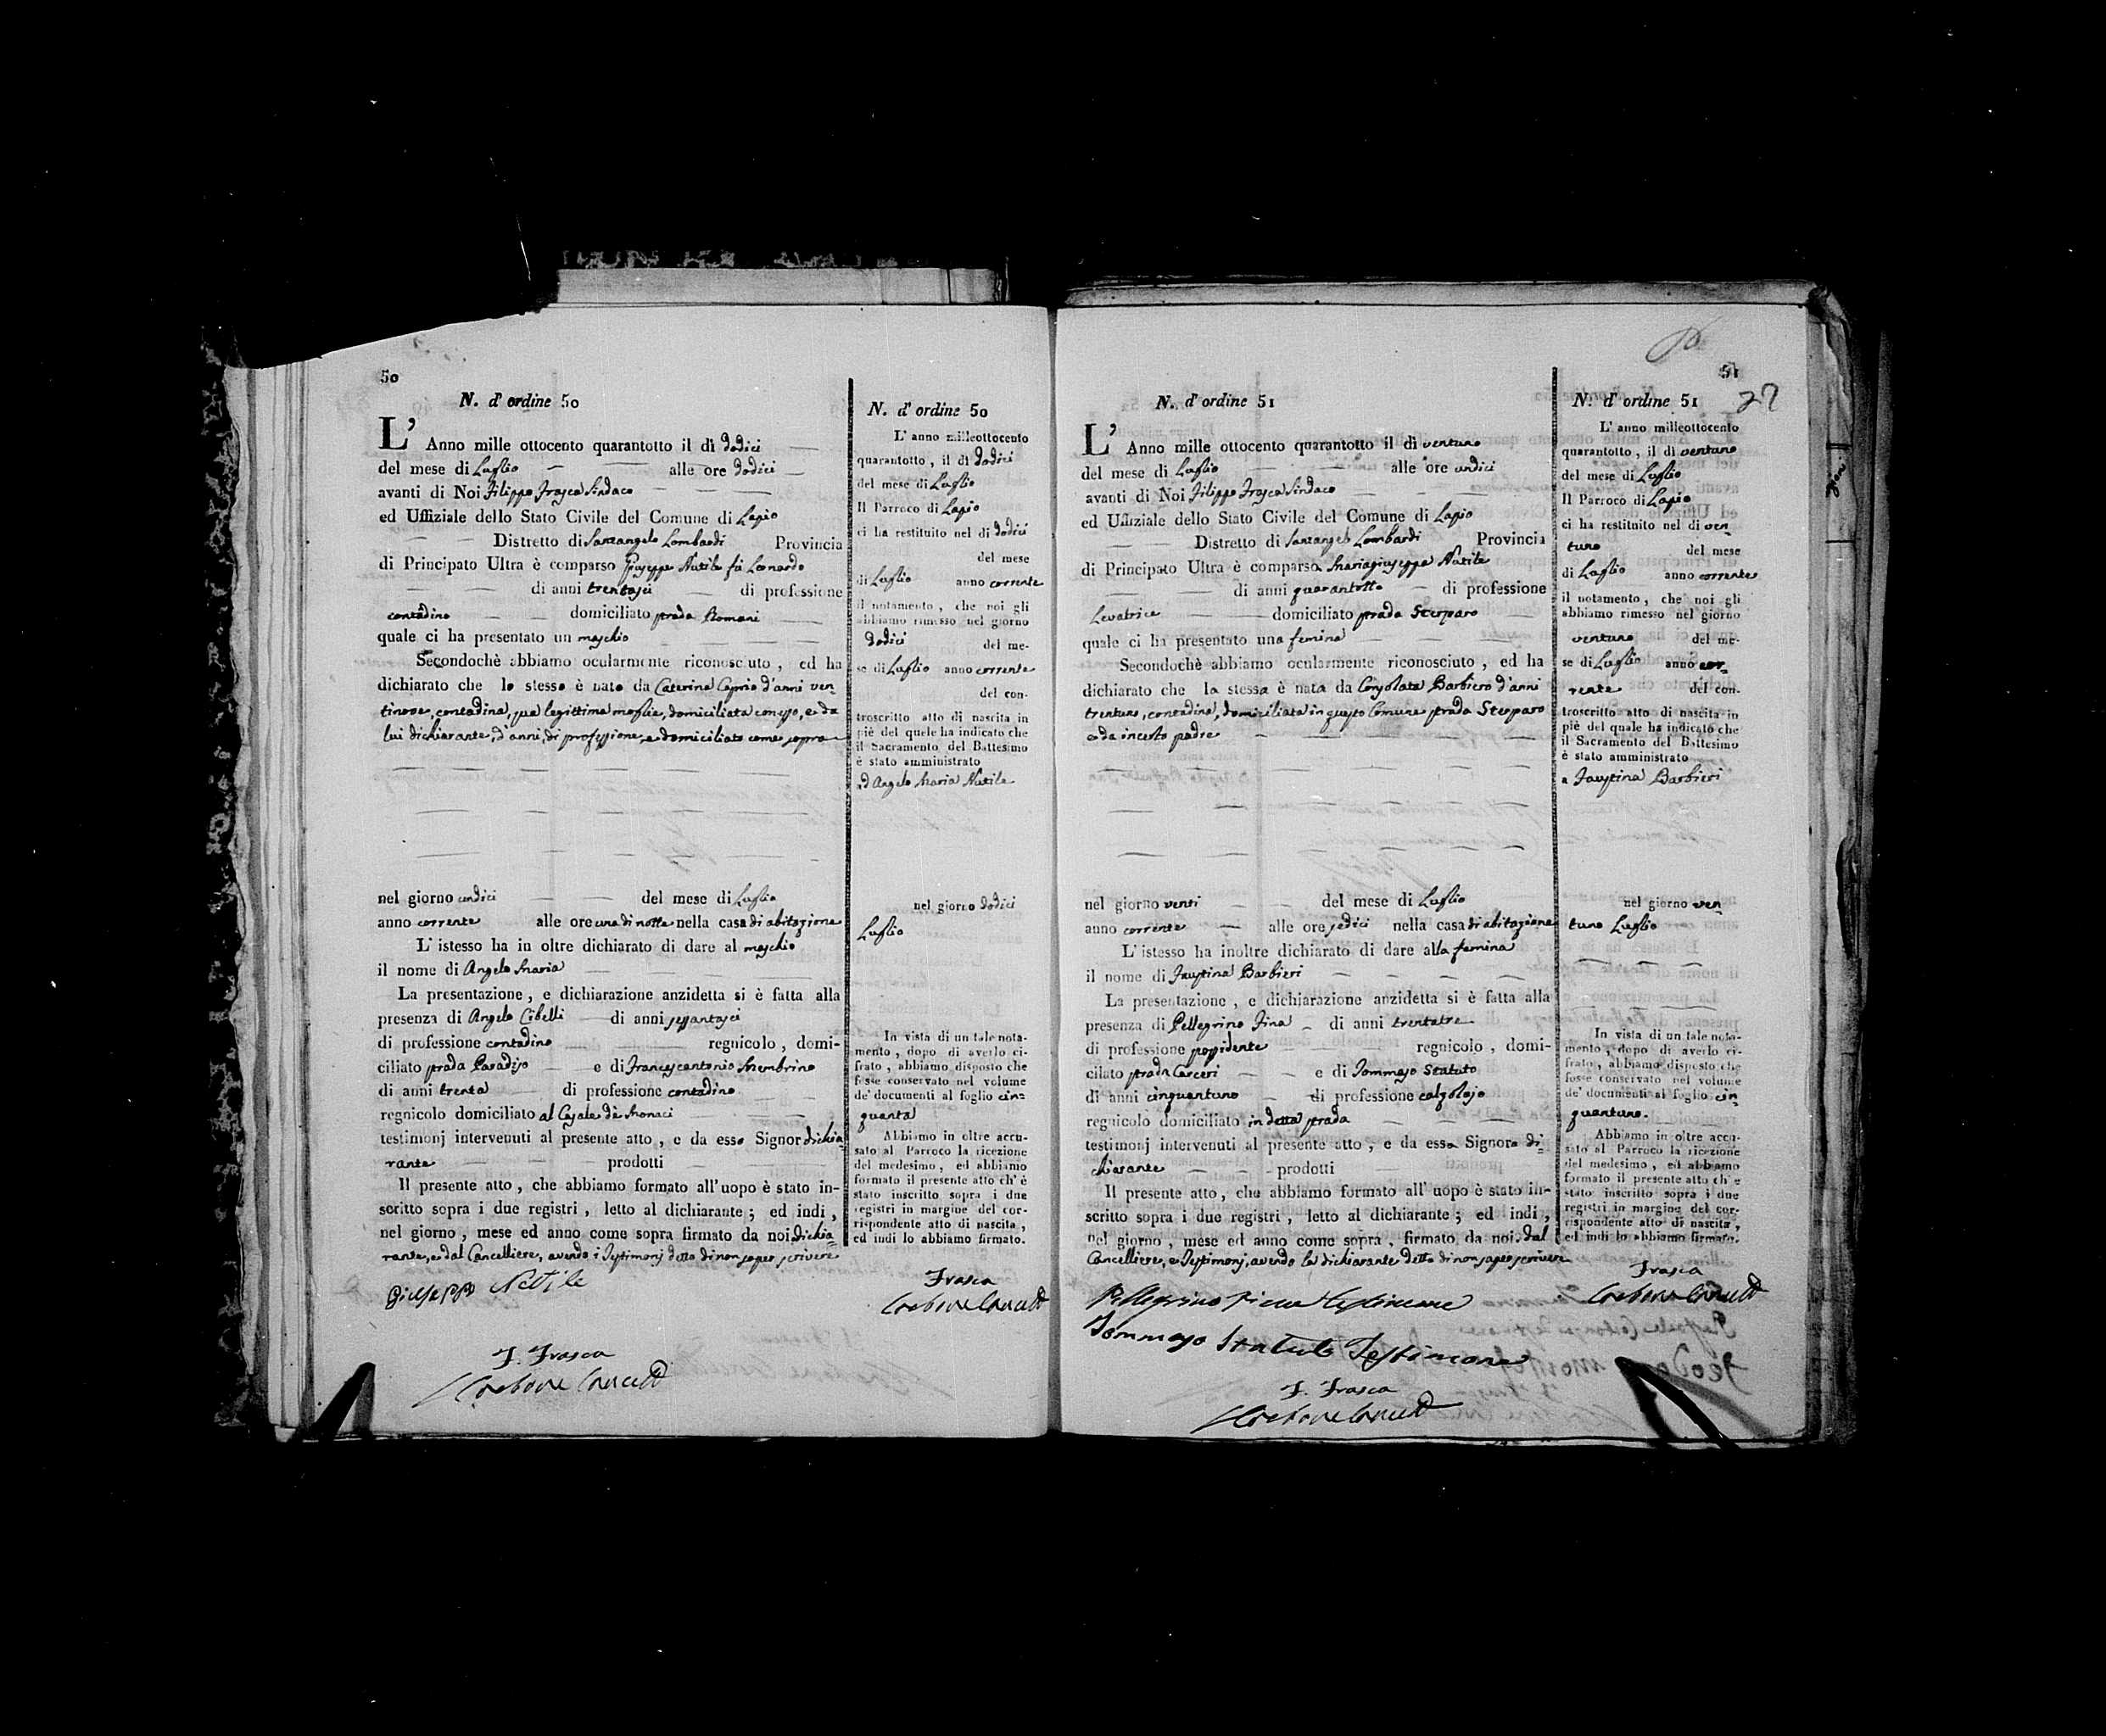 50
N. d'ordine 50
L'Anno mille ottocento quarantotto il dì dodici
del mese di Luglio alle ore dodici
avanti di Noi Filippo Frasca Sindaco
ed Uffiziale dello Stato Civile del Comune di Lapio
Distretto di Santangelo Lombardi Provincia
di Principato Ultra è comparso Giuseppe Nutile fù Leonardo
di anni trentasei di professione
contadino domiciliato strada Romani
quale ci ha presentato un maschio
Secondochè abbiamo ocularmente riconosciuto, ed ha
dichiarato che lo stesso è nato da Caterina Caprio d'anni ven-
tinove, contadina, sua legittima moglie, domiciliata con esso, e da
lui dichiarante, d'anni, di professione, e domiciliato come sopra
nel giorno undici del mese di Luglio
anno corrente alle ore una di notte nella casa di abitazione
L'istesso ha in oltre dichiarato di dare al maschio
il nome di Angelo Maria
La presentazione, e dichiarazione anzidetta si è fatta alla
presenza di Angelo Cibelli di anni sessantasei
di professione contadino regnicolo, domi-
ciliato strada Paradiso e di Francescantonio Membrino
di anni trenta di professione contadino
regnicolo domiciliato al Casale de Monaci
testimonj intervenuti al presente atto, e da esso Signor dichia-
rante prodotti
Il presente atto, che abbiamo formato all'uopo è stato in-
scritto sopra i due registri, letto al dichiarante; ed indi,
nel giorno, mese ed anno come sopra firmato da noi, dichia-
rante, e dal Cancelliere, avendo i Testimonj detto di non saper scrivere
Giuseppe Nutile
F. Frasca
N. d'ordine 50
L'anno milleottocento
quarantotto, il dì dodici
del mese di Luglio
Il Parroco di Lapio
ci ha restituito nel dì dodici
del mese
di Luglio anno corrente
il notamento, che noi gli
abbiamo rimesso nel giorno
dodici del me-
se di Luglio anno corrente
del con-
troscritto atto di nascita in
piè del quele ha indicato che
il Sacramento del Battesimo
è stato amministrato
ad Angelo Maria Nutile
nel giorno dodici
Luglio
In vista di un tale nota-
mento, dopo di averlo ci-
frato, abbiamo disposto che
fosse conservato nel volume
de' documenti al foglio cin-
quanta
Abbiamo in oltre accu-
sato al Parroco la ricezione
del medesimo, ed abbiamo
formato il presente atto ch'è
stato inscritto sopra i due
registri in margine del cor-
rispondente atto di nascita,
ed indi lo abbiamo firmato.
Frasca
51
N. d'ordine 51
L'Anno mille ottocento quarantotto il dì ventuno
del mese di Luglio alle ore undici
avanti di Noi Filippo Frasca Sindaco
ed Uffiziale dello Stato Civile del Comune di Lapio
Distretto di Santangelo Lombardi Provincia
di Principato Ultra è comparsa Mariagiuseppe Nutile
di anni quarantotto di professione
Levatrice domiciliato strada Sterparo
quale ci ha presentato una femina
Secondochè abbiamo ocularmente riconosciuto, ed ha
dichiarato che la stessa è nata da Consolata Barbiero d'anni
trentuno, contadina, domiciliata in questo Comune strada Sterparo
e da incerto padre
nel giorno venti del mese di Luglio
anno corrente alle ore sedici nella casa di abitazione
L'istesso ha inoltre dichiarato di dare alla femina
il nome di Faustina Barbieri
La presentazione, e dichiarazione anzidetta si è fatta alla
presenza di Pellegrino Fina di anni trentatre
di professione possidente regnicolo, domi-
cilato strada Carceri e di Tommaso Statuto
di anni cinquantuno di professione calzolajo
regnicolo domiciliato in detta strada
testimonj intervenuti al presente atto, e da essa Signora di-
chiarante prodotti
Il presente atto, che abbiamo formato all'uopo è stato in-
scritto sopra i due registri, letto al dichiarante; ed indi,
nel giorno, mese ed anno come sopra, firmato da noi, dal
Cancelliere, e Testimonj, avendo la dichiarante detto di non saper scrivere
Pellegrino Fina testimone
Tommaso Statuto Testimone
F. Frasca
N. d'ordine 51
27
L'anno milleottocento
quarantotto, il dì ventuno
del mese di Luglio
Il Parroco di Lapio
ci ha restituito nel dì ven-
tuno del mese
di Luglio anno corrente
il notamento, che noi gli
abbiamo rimesso nel giorno
ventuno del me-
se di Luglio anno cor-
rente del con-
troscritto atto di nascita in
piè del quale ha indicato che
il Sacramento del Battesimo
è stato amministrato
a Faustina Barbieri
nel giorno ven-
tuno Luglio
In vista di un tale nota-
mento, dopo di averlo ci-
frato, abbiamo disposto che
fosse conservato nel volume
de' documenti al foglio cin-
quantuno.
Abbiamo in oltre accu-
sato al Parroco la ricezione
del medesimo, ed abbiamo
formato il presente atto ch'è
stato inscritto sopra i due
registri in margine del cor-
rispondente atto di nascita,
ed indi lo abbiamo firmato.
Frasca